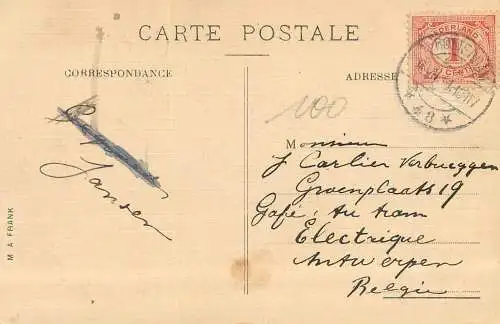 CARTE POSTALE
CORRESPONDANCE
ADRESSE
NEDERLAND
1
CENT
* 8 *
100
Jansen
Monsieur
J Carlier Verbruggen
Groenplaats 19
Gafé: Au tram
Electrique
Antwerpen
Belgie
M. A. FRANK